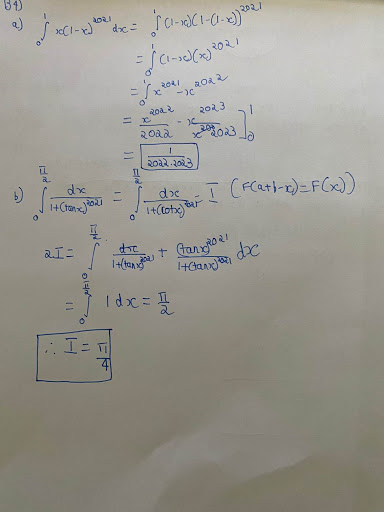 Q4)
a) ∫₀¹ x(1-x)²⁰²¹ dx = ∫₀¹ (1-x)(1-(1-x))²⁰²¹
= ∫₀¹ (1-x)(x)²⁰²¹
= ∫₀¹ x²⁰²¹ - x²⁰²²
= x²⁰²²/2022 - x²⁰²³/2023 ]₀¹
= 1/2022·2023
b) ∫₀^(π/2) dx/1+(tanx)²⁰²¹ = ∫₀^(π/2) dx/1+(cotx)²⁰²¹ = I (F(a+b-x)=F(x))
2I = ∫₀^(π/2) dx/1+(tanx)²⁰²¹ + (tanx)²⁰²¹/1+(tanx)²⁰²¹ dx
= ∫₀^(π/2) 1 dx = π/2
∴ I = π/4